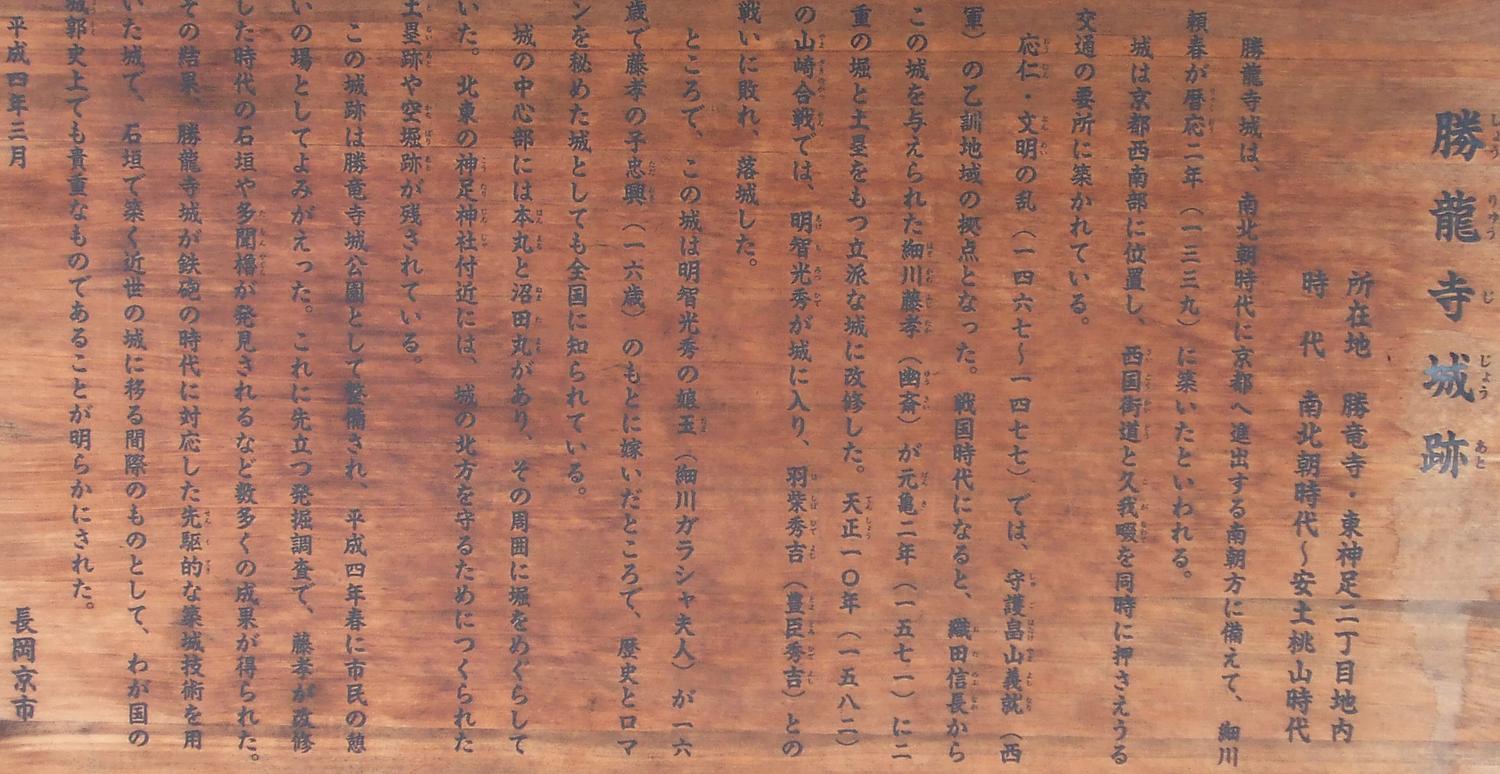 勝龍寺城跡
所在地　勝竜寺・東神足二丁目地内
時　代　南北朝時代～安土桃山時代
勝龍寺城は、南北朝時代に京都へ進出する南朝方に備えて、細川
頼春が暦応二年（一三三九）に築いたといわれる。
城は京都西南部に位置し、西国街道と久我畷を同時に押さえうる
交通の要所に築かれている。
応仁・文明の乱（一四六七～一四七七）では、守護畠山義就（西
軍）の乙訓地域の拠点となった。戦国時代になると、織田信長から
この城を与えられた細川藤孝（幽斎）が元亀二年（一五七一）に二
重の堀と土塁をもつ立派な城に改修した。天正一〇年（一五八二）
の山崎合戦では、明智光秀が城に入り、羽柴秀吉（豊臣秀吉）との
戦いに敗れ、落城した。
ところで、この城は明智光秀の娘玉（細川ガラシャ夫人）が一六
歳で藤孝の子忠興（一六歳）のもとに嫁いだところで、歴史とロマ
ンを秘めた城としても全国に知られている。
城の中心部には本丸と沼田丸があり、その周囲に堀をめぐらして
いた。北東の神足神社付近には、城の北方を守るためにつくられた
土塁跡や空堀跡が残されている。
この城跡は勝竜寺城公園として整備され、平成四年春に市民の憩
いの場としてよみがえった。これに先立つ発掘調査で、藤孝が改修
した時代の石垣や多聞櫓が発見されるなど数多くの成果が得られた。
その結果、勝龍寺城が鉄砲の時代に対応した先駆的な築城技術を用
いた城で、石垣で築く近世の城に移る間際のものとして、わが国の
城郭史上でも貴重なものであることが明らかにされた。
平成四年三月　長岡京市